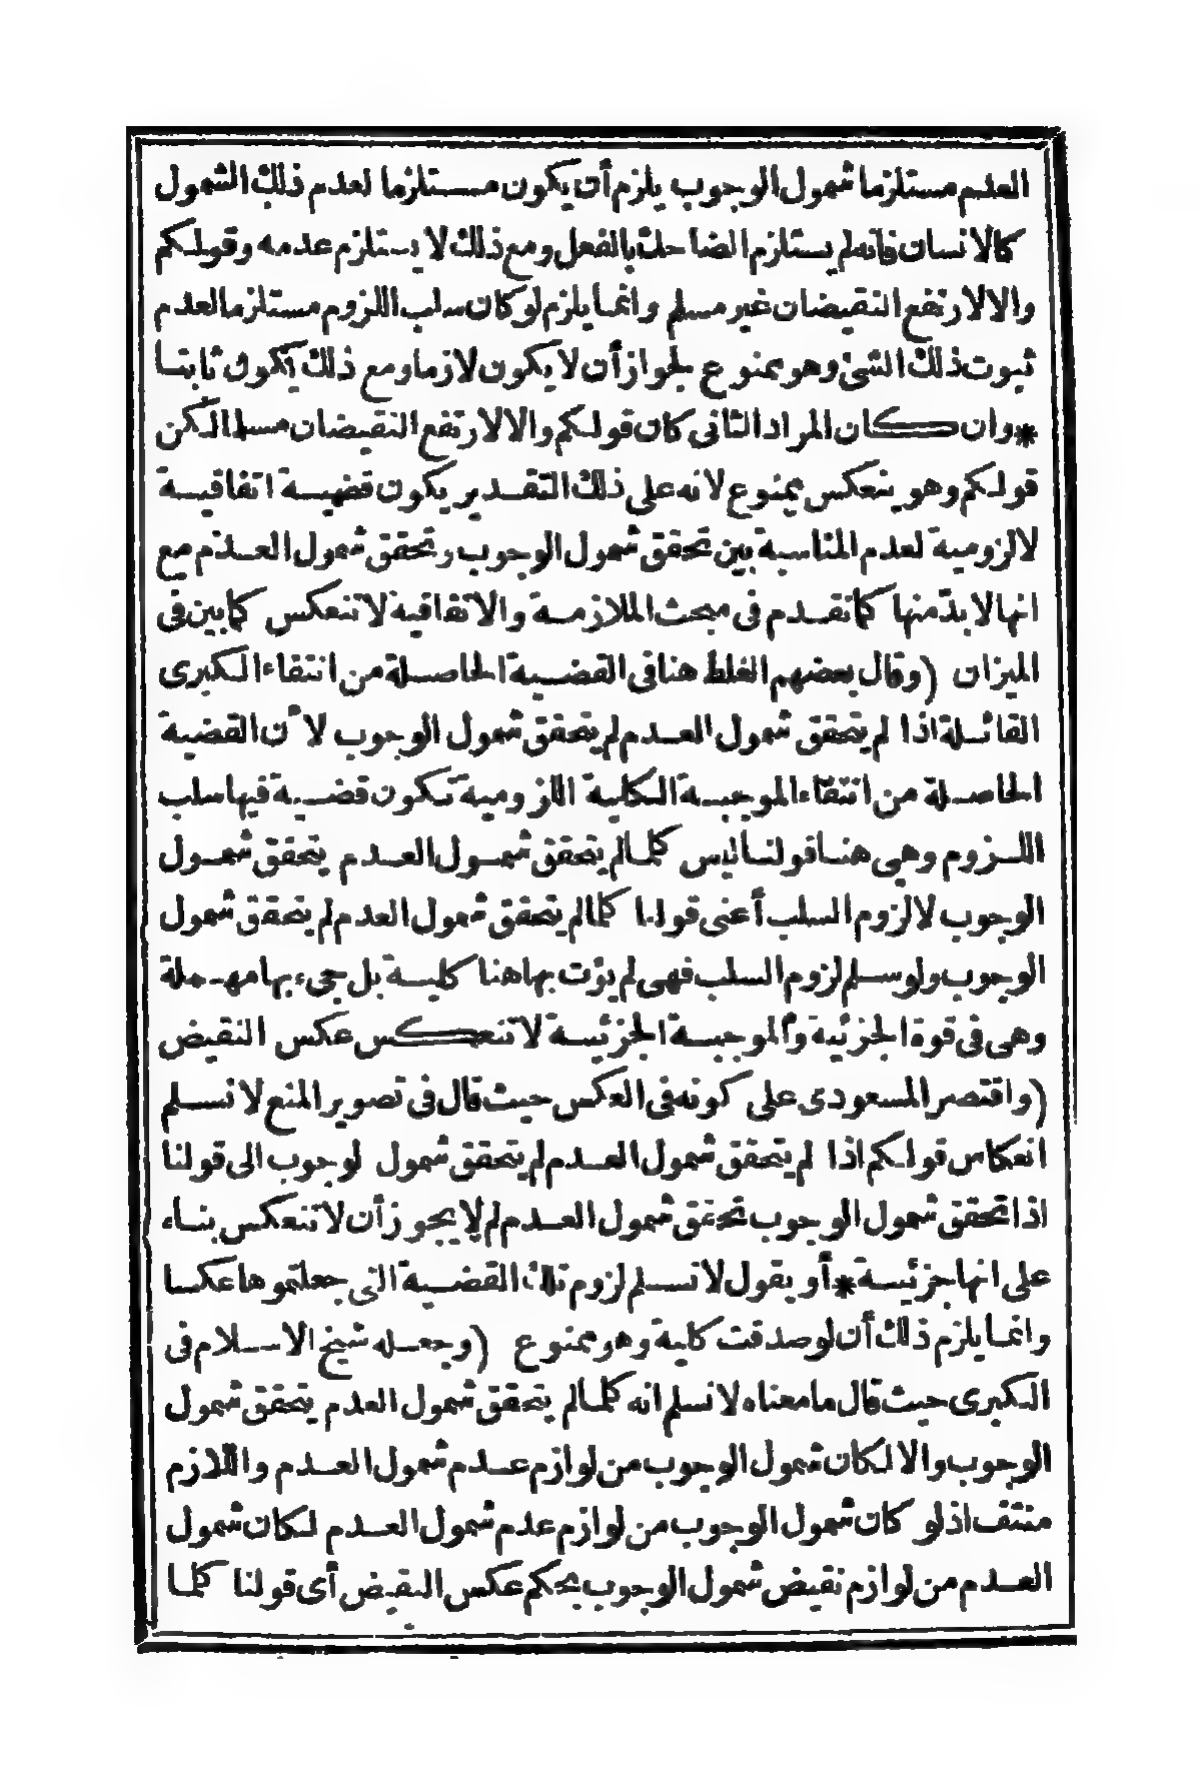 العدم مستلزما شمول الوجوب يلزم أن يكون مستلزما لعدم ذلك الشمول
كالانسان فانه لم يستلزم الضاحك بالفعل ومع ذلك لا يستلزم عدمه وقولكم
والا لارتفع النقيضان غير مسلم وانما يلزم لو كان سلب اللزوم مستلزما لعدم
ثبوت ذلك الشئ وهو ممنوع لجواز أن لا يكون لازما ومع ذلك يكون ثابتا
*وان كان المراد الثانى كان قولكم والا لارتفع النقيضان مسلما لكن
قولكم وهو ينعكس ممنوع لانه على ذلك التقدير يكون قضية اتفاقية
لا لزومية لعدم المناسبة بين تحقق شمول الوجوب وتحقق شمول العدم مع
انها لا بدّ منها كما تقدم فى مبحث الملازمة والاتفاقية لا تنعكس كما بين فى
الميزان (وقال بعضهم الغلط هنا فى القضية الحاصلة من انتفاء الكبرى
القائلة اذا لم يتحقق شمول العدم لم يتحقق شمول الوجوب لأن القضية
الحاصلة من انتفاء الموجبة الكلية اللزومية تكون قضية فيها سلب
اللزوم وهى هنا قولنا ليس كلما لم يتحقق شمول العدم يتحقق شمول
الوجوب لا لزوم السلب أعنى قولنا كلما لم يتحقق شمول العدم لم يتحقق شمول
الوجوب ولو سلم لزوم السلب فهى لم يؤت بها هنا كلية بل جىء بها مهملة
وهى فى قوة الجزئية والموجبة الجزئية لا تنعكس عكس النقيض
(واقتصر المسعودى على كونه فى العكس حيث قال فى تصوير المنع لا نسلم
انعكاس قولكم اذا لم يتحقق شمول العدم لم يتحقق شمول لوجوب الى قولنا
اذا تحقق شمول الوجوب تحقق شمول العدم لم لا يجوز أن لا تنعكس بناء
على انها جزئية * أو يقول لا نسلم لزوم تلك القضية التى جعلتموها عكسا
وانما يلزم ذلك أن لو صدقت كلية وهو ممنوع (وجعله شيخ الاسلام فى
الكبرى حيث قال ما معناه لا نسلم انه كلما لم يتحقق شمول العدم يتحقق شمول
الوجوب والا لكان شمول الوجوب من لوازم عدم شمول العدم واللازم
منتف اذ لو كان شمول الوجوب من لوازم عدم شمول العدم لكان شمول
العدم من لوازم نقيض شمول الوجوب بحكم عكس النقيض أى قولنا كلما